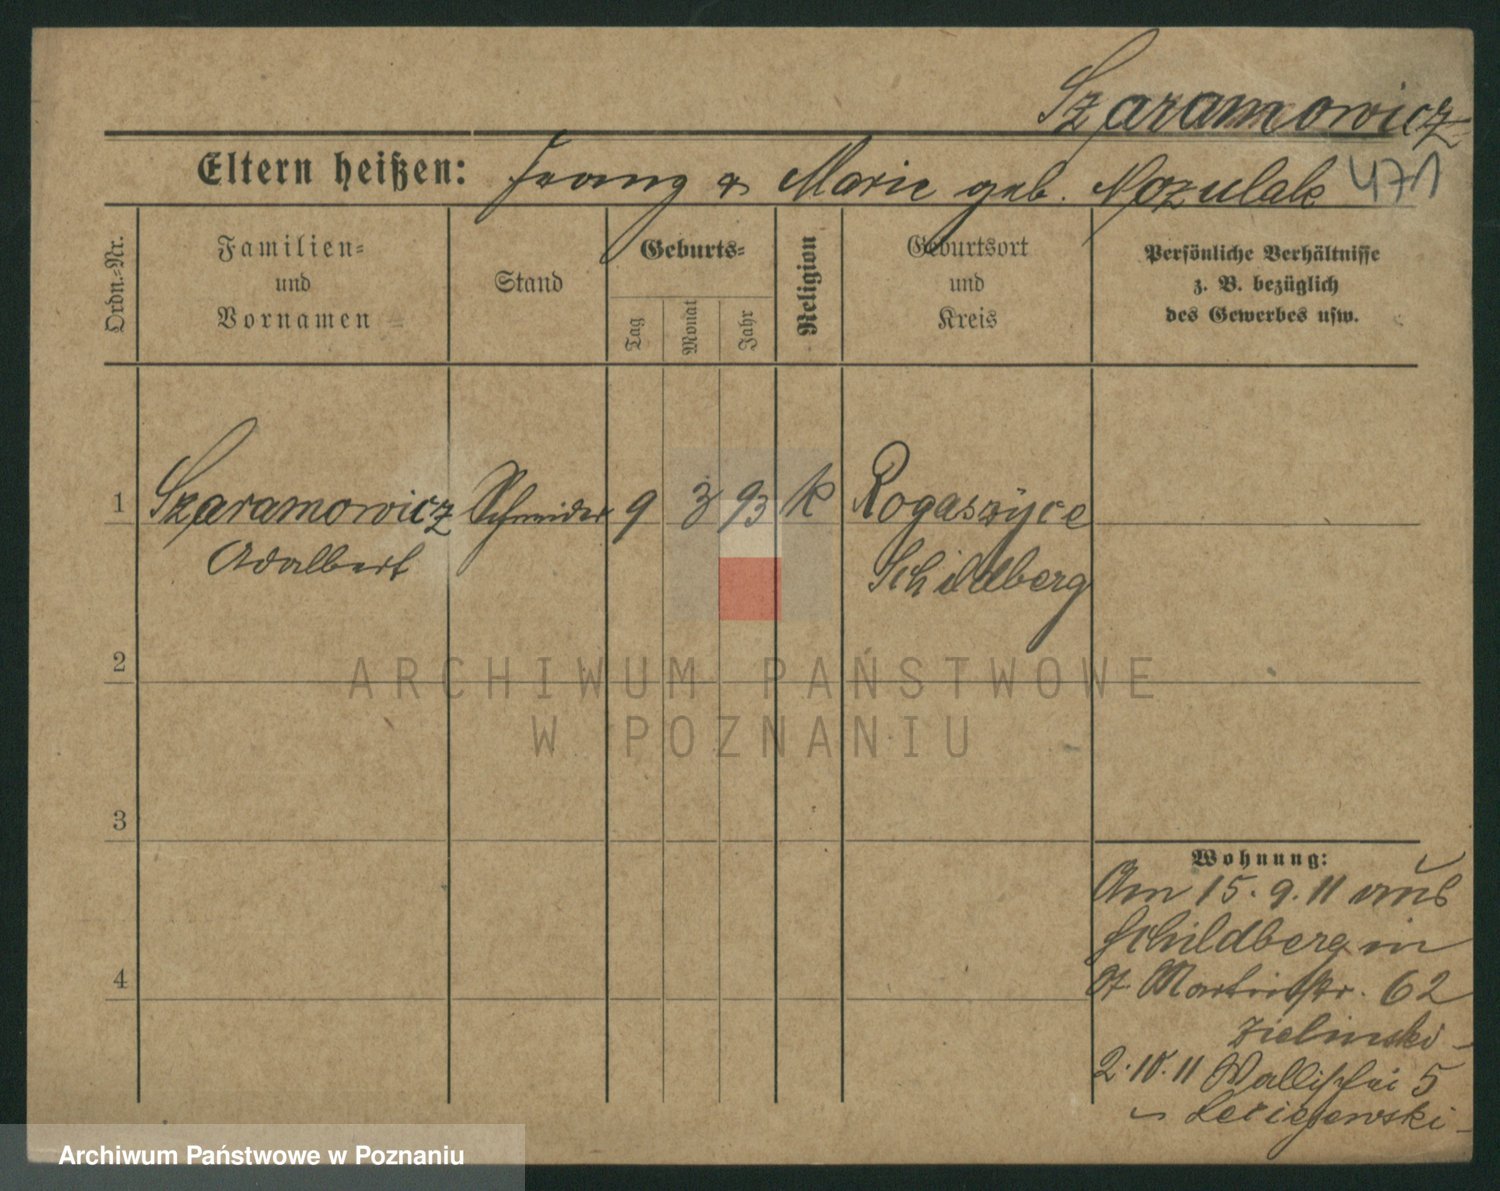 Szaramowicz
471
Eltern heißen: Franz & Marie geb. Nozulak
Ordn.-Nr.
Familien- und Vornamen
Stand
Geburts-
Tag
Monat
Jahr
Religion
Geburtsort und Kreis
Persönliche Verhältnisse
z. B. bezüglich
des Gewerbes usw.
1 Szaramowicz Schneider 9 3 93 k Rogaszyce
Adalbert Schildberg
2
ARCHIWUM PAŃSTWOWE
W POZNANIU
3
Wohnung:
Am 15.9.11 aus
Schildberg in
4
St Martinstr. 62
Zielinski
2.10.11 Wallischei 5
Archiwum Państwowe w Poznaniu